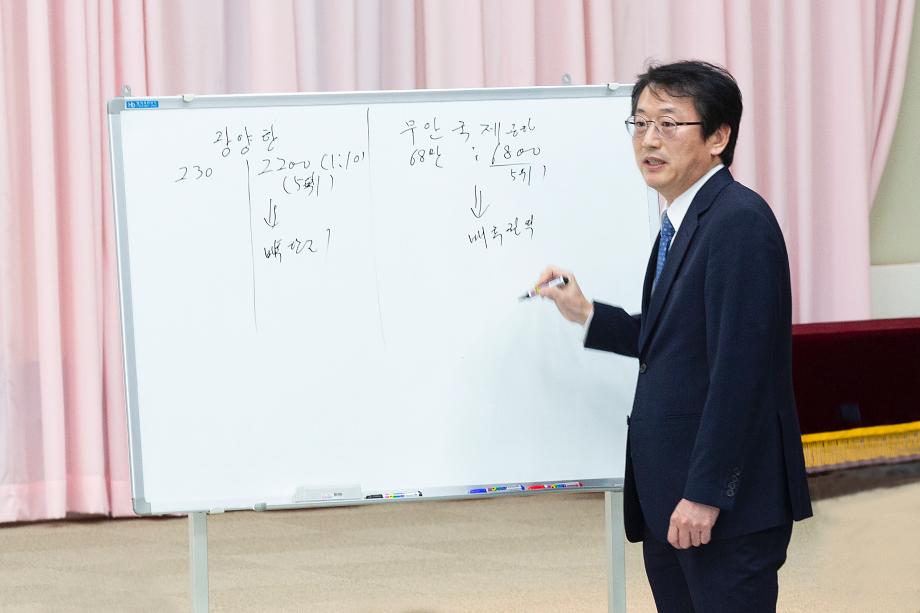 광양한
230
2200 (1:10)
(5위)
⇓
무안국제공항
68만 : 6800
5위)
⇓
배후권역